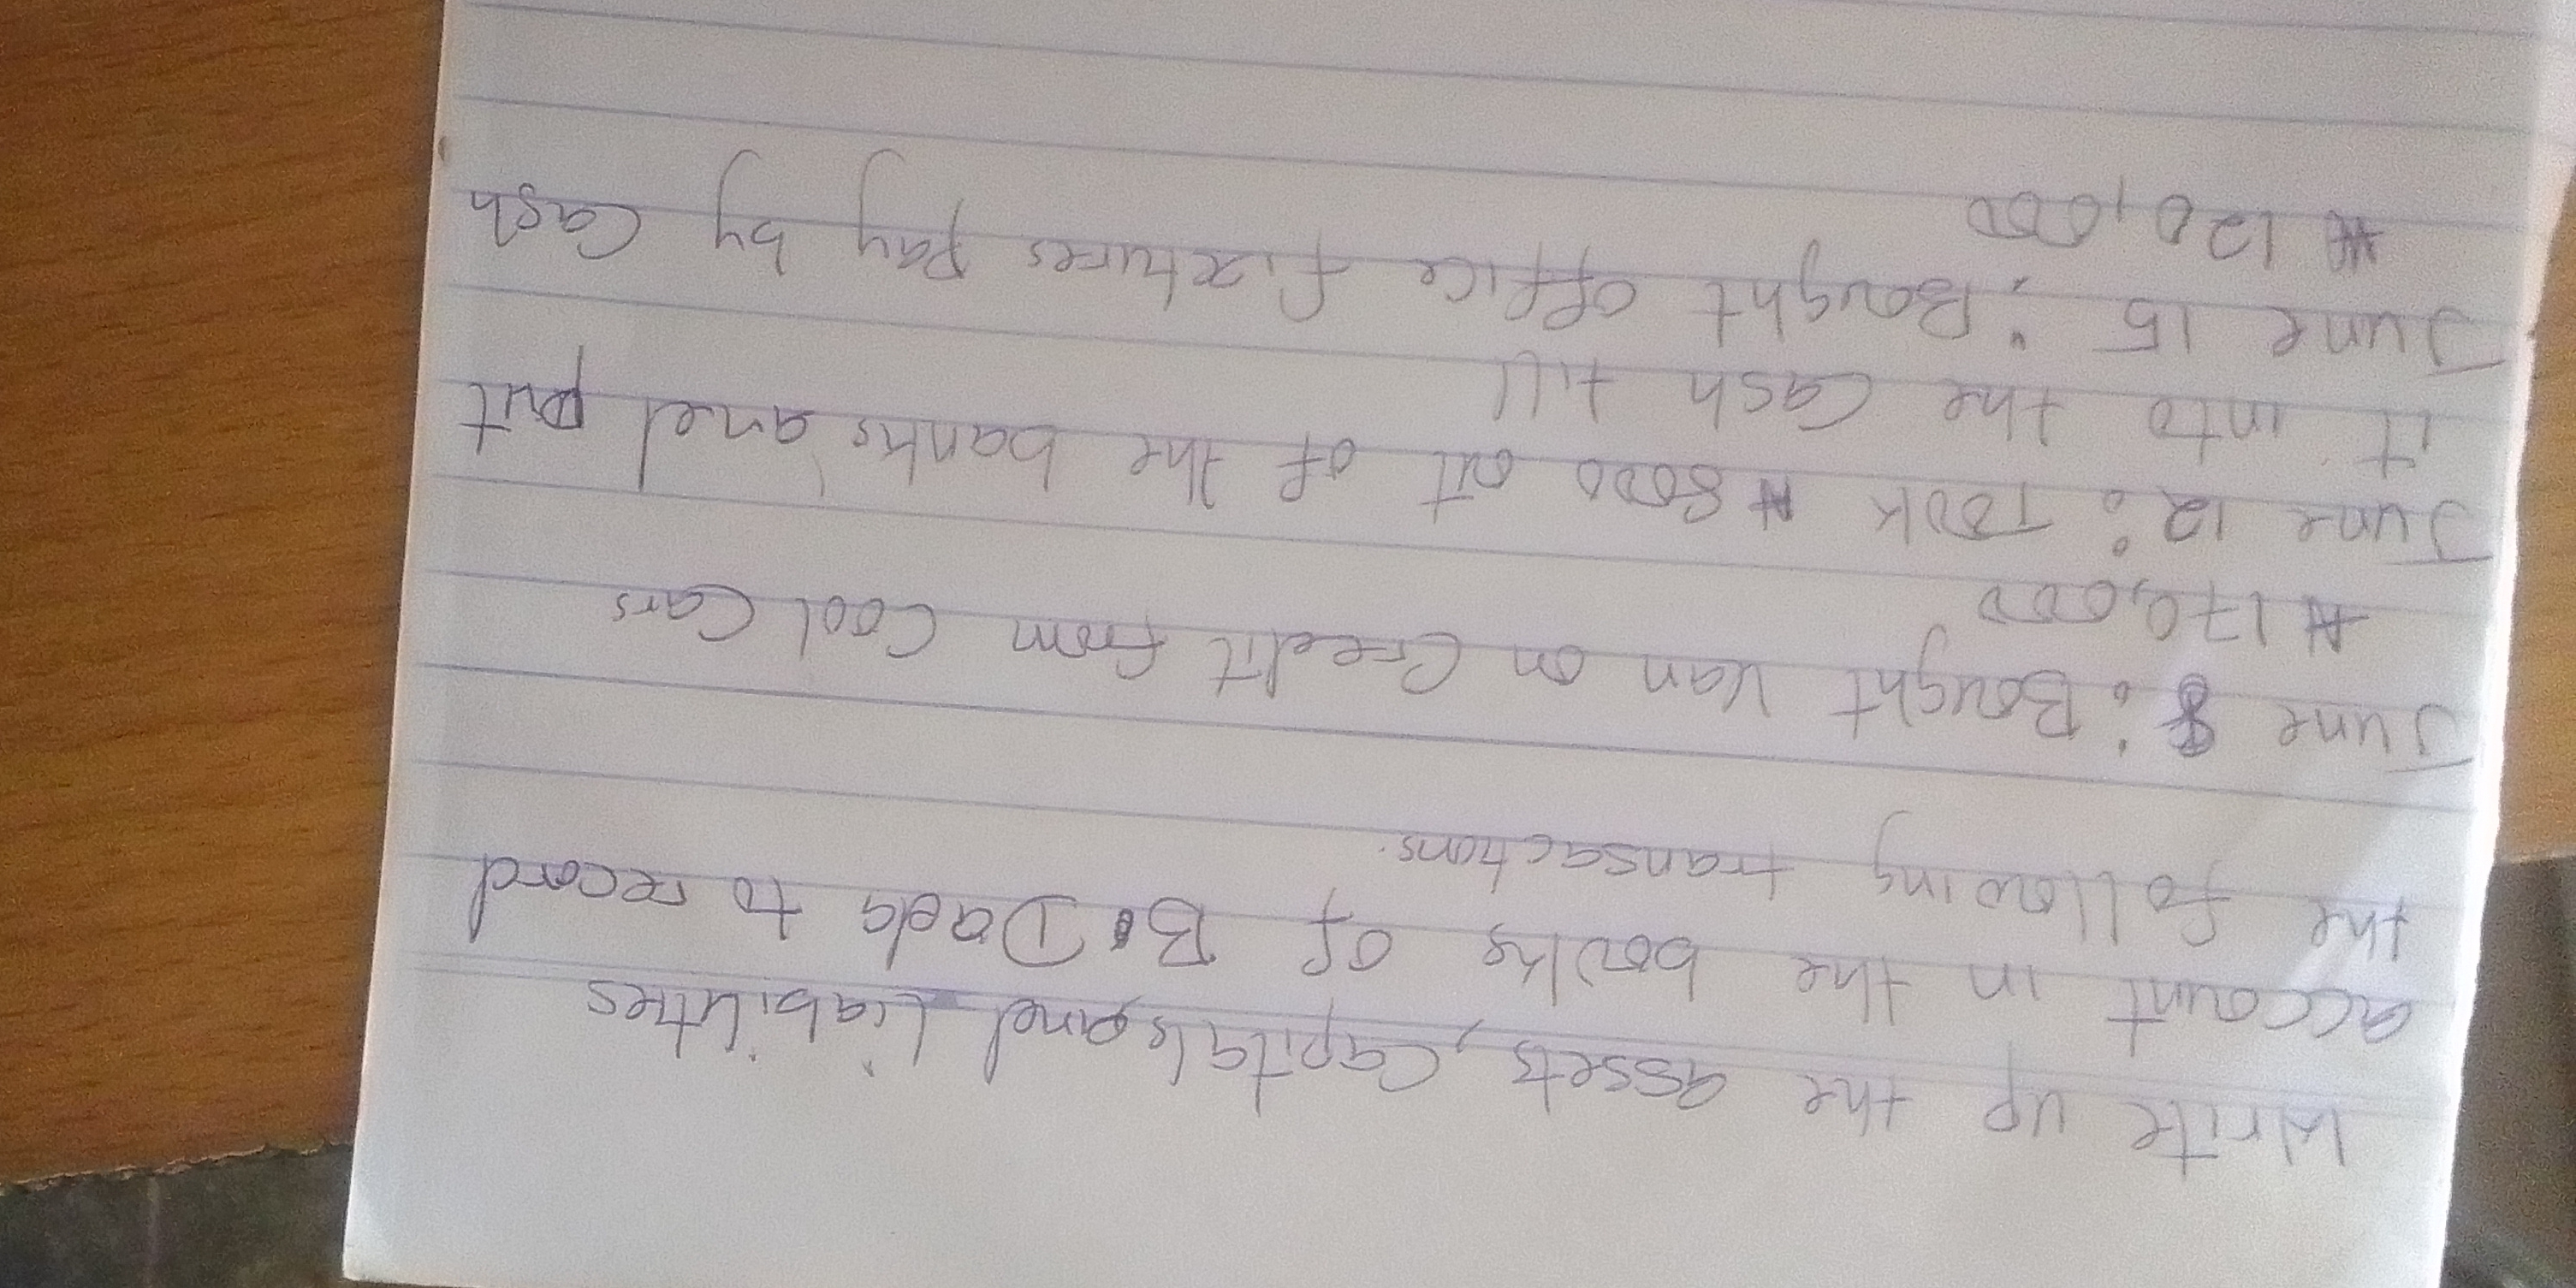 Write up the assets, Capitals and Liabilities
account in the books of B. Dada to record
the following transactions.
June 8: Bought Van on Credit from Cool Cars
₦170,000
June 12: Took ₦8000 out of the banks and put
it into the Cash till
June 15: Bought office fixtures pay by Cash
₦120,000